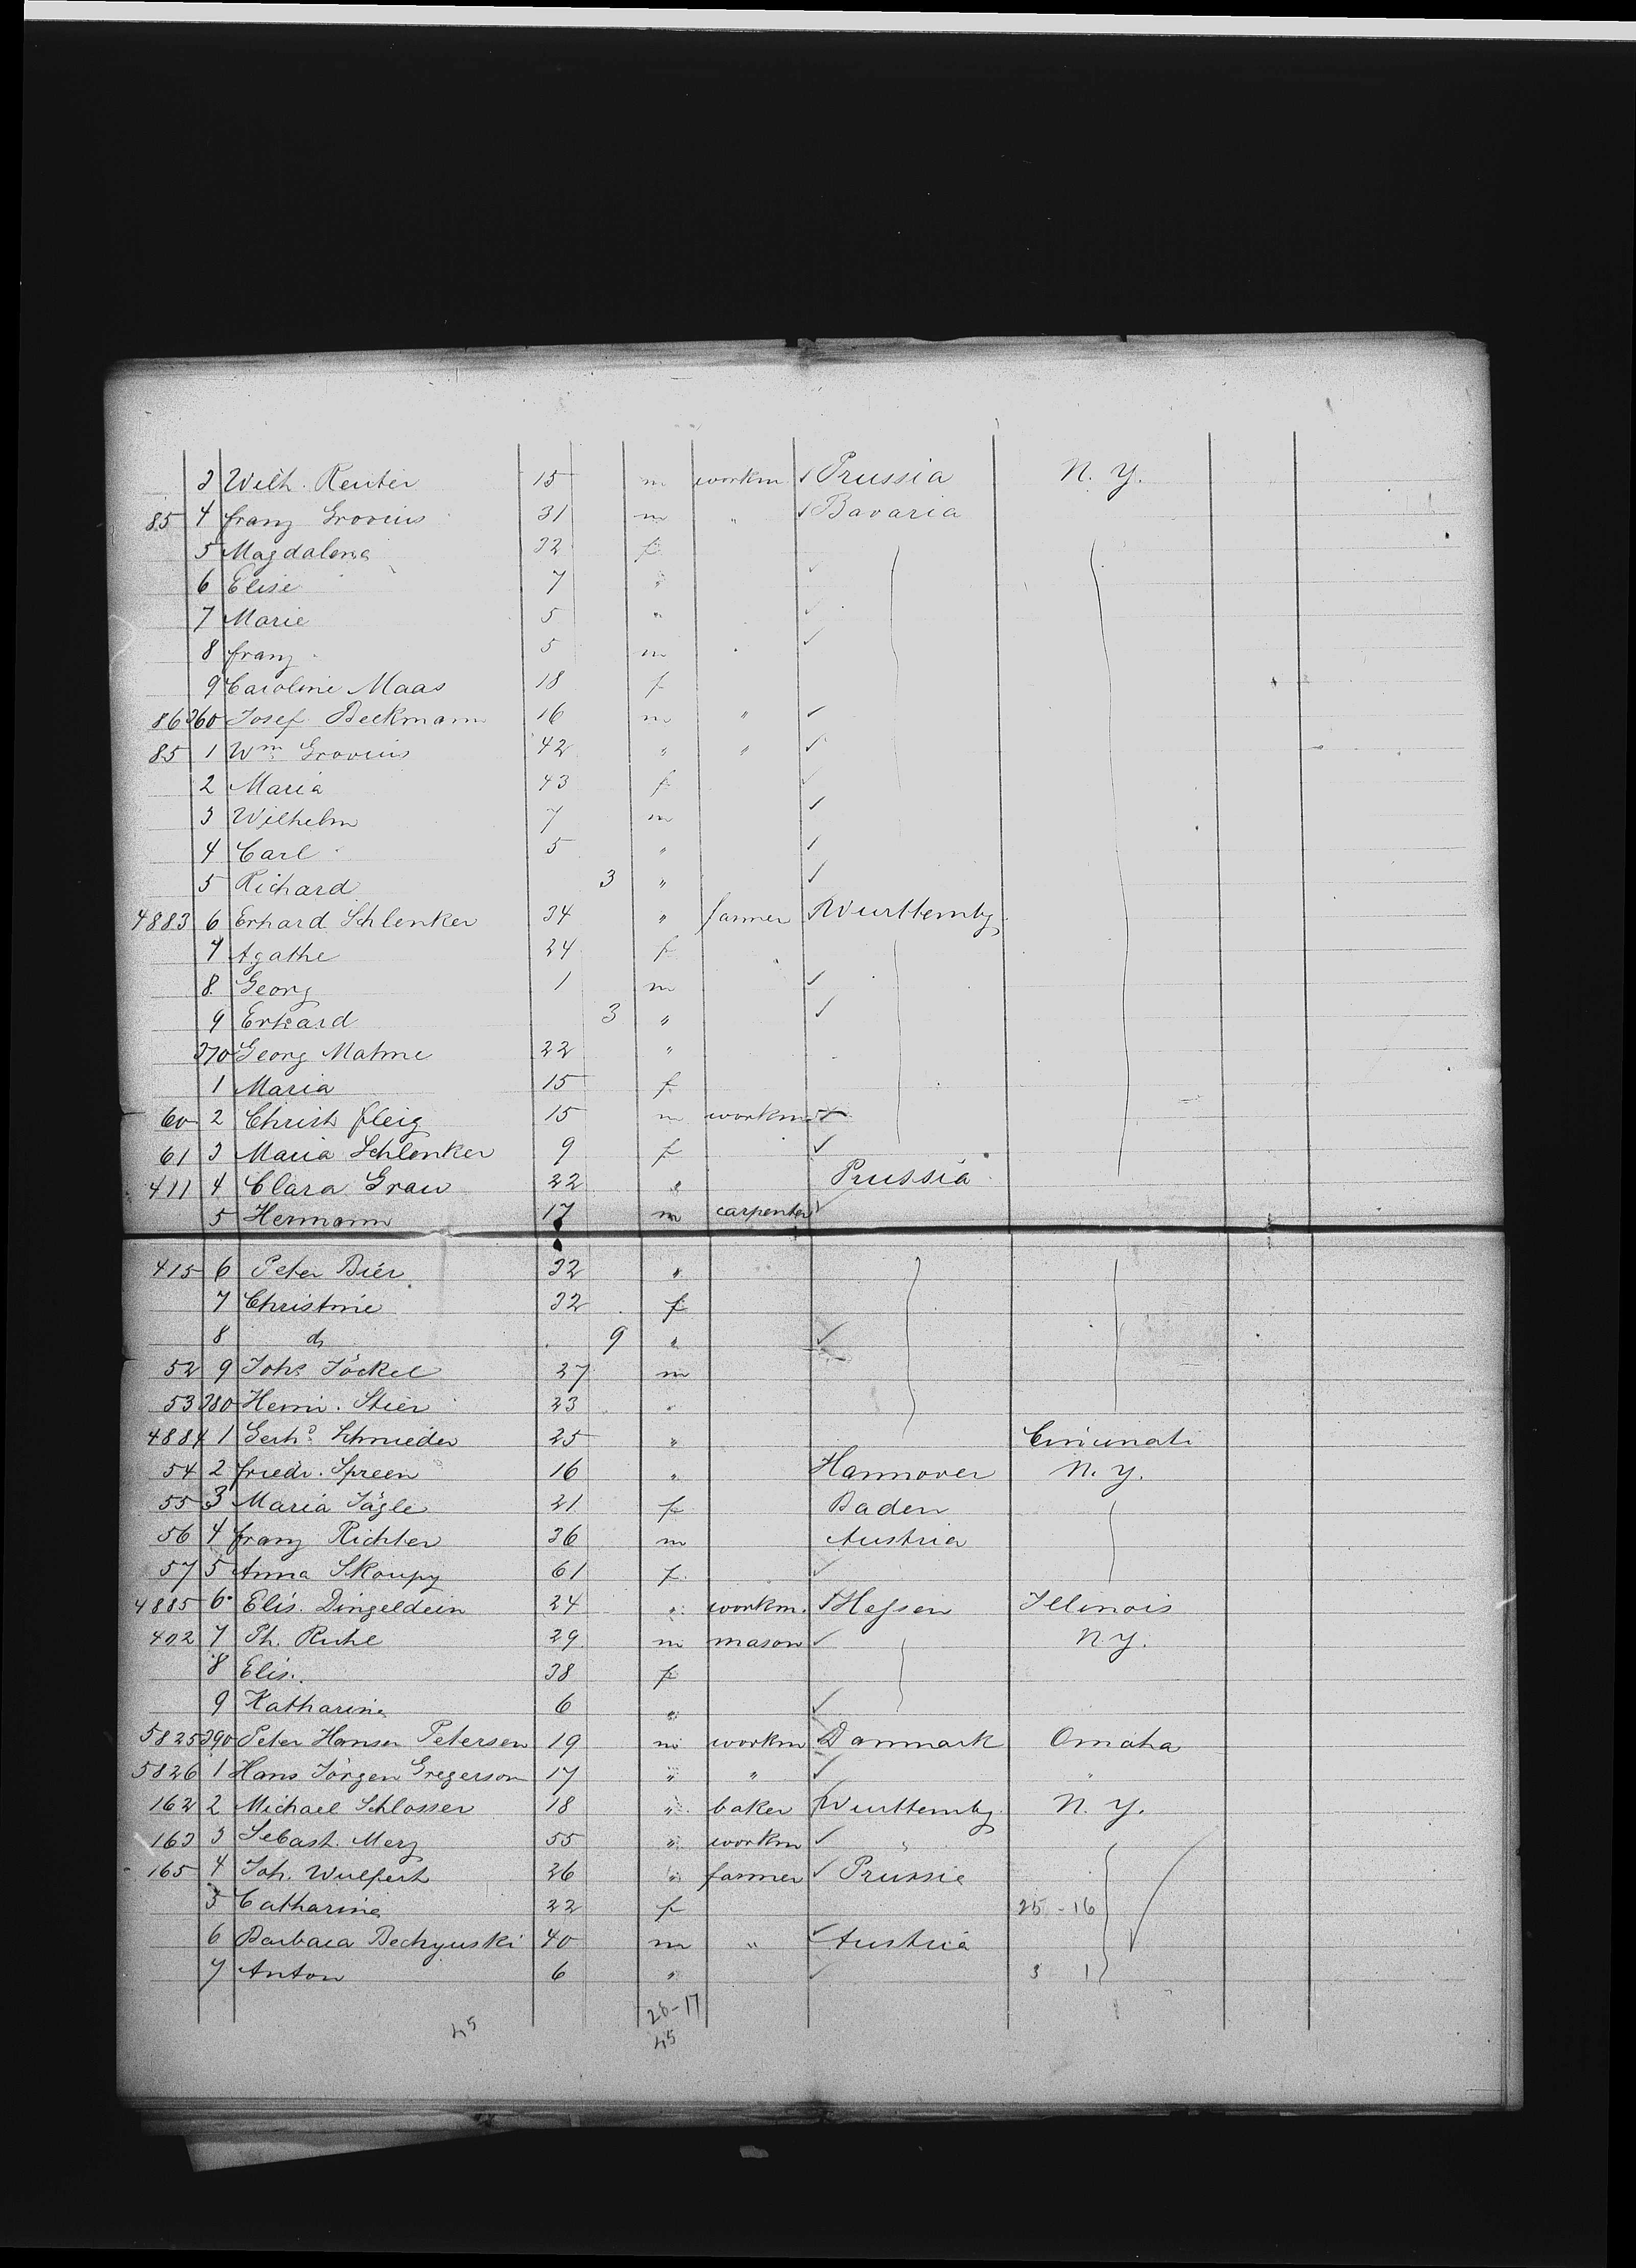 3 Wilh. Reuter 15 m workm Prussia N. Y.
85 4 Franz Grovius 31 m " Bavaria
5 Magdalena 32 f
6 Elise 7 "
7 Marie 5 "
8 Franz 5 m
9 Caroline Maas 18 f
86 260 Josef Beckmann 16 m "
85 1 Wm Grovius 42 " "
2 Maria 43 f
3 Wilhelm 7 m
4 Carl 5 "
5 Richard 3 "
4883 6 Erhard Schlenker 34 " farmer Wurttembg
7 Agathe 24 f
8 Georg 1 m
9 Erhard 3 "
270 Georg Mahne 22 "
1 Maria 15 f
60 2 Christ. Fleig 15 m workm
61 3 Maria Schlenker 9 f
411 4 Clara Grau 22 " Prussia
5 Hermann 17 m carpenter
415 6 Peter Bier 32 "
7 Christine 32 f
8 do 9 "
52 9 Johs Jöckel 27 m
53 280 Heinr. Stier 23 "
4884 1 Gerhd Schnieder 25 " Cincinati
54 2 Friedr. Spreen 16 " Hannover N. Y.
55 3 Maria Jägle 21 f Baden
56 4 Franz Richter 36 m Austria
57 5 Anna Skoupy 61 f
4885 6 Elis. Dingeldein 24 " workm. Hessen Illinois
402 7 Ph. Ruhl 29 m mason N. Y.
8 Elis. 38 f
9 Katharine 6 "
5825 290 Peter Hansen Petersen 19 m workm Danmark Omaha
5826 1 Hans Jörgen Gregerson 17 " " "
162 2 Michael Schlosser 18 " baker Wurttembg N. Y.
163 3 Sebast. Merz 55 " workm "
165 4 Joh. Wulfert 26 " farmer Prussia
5 Catharine 22 f 25 - 16
6 Barbara Bechynski 40 m " Austria
7 Anton 6 " 3 1
28-17
45 45